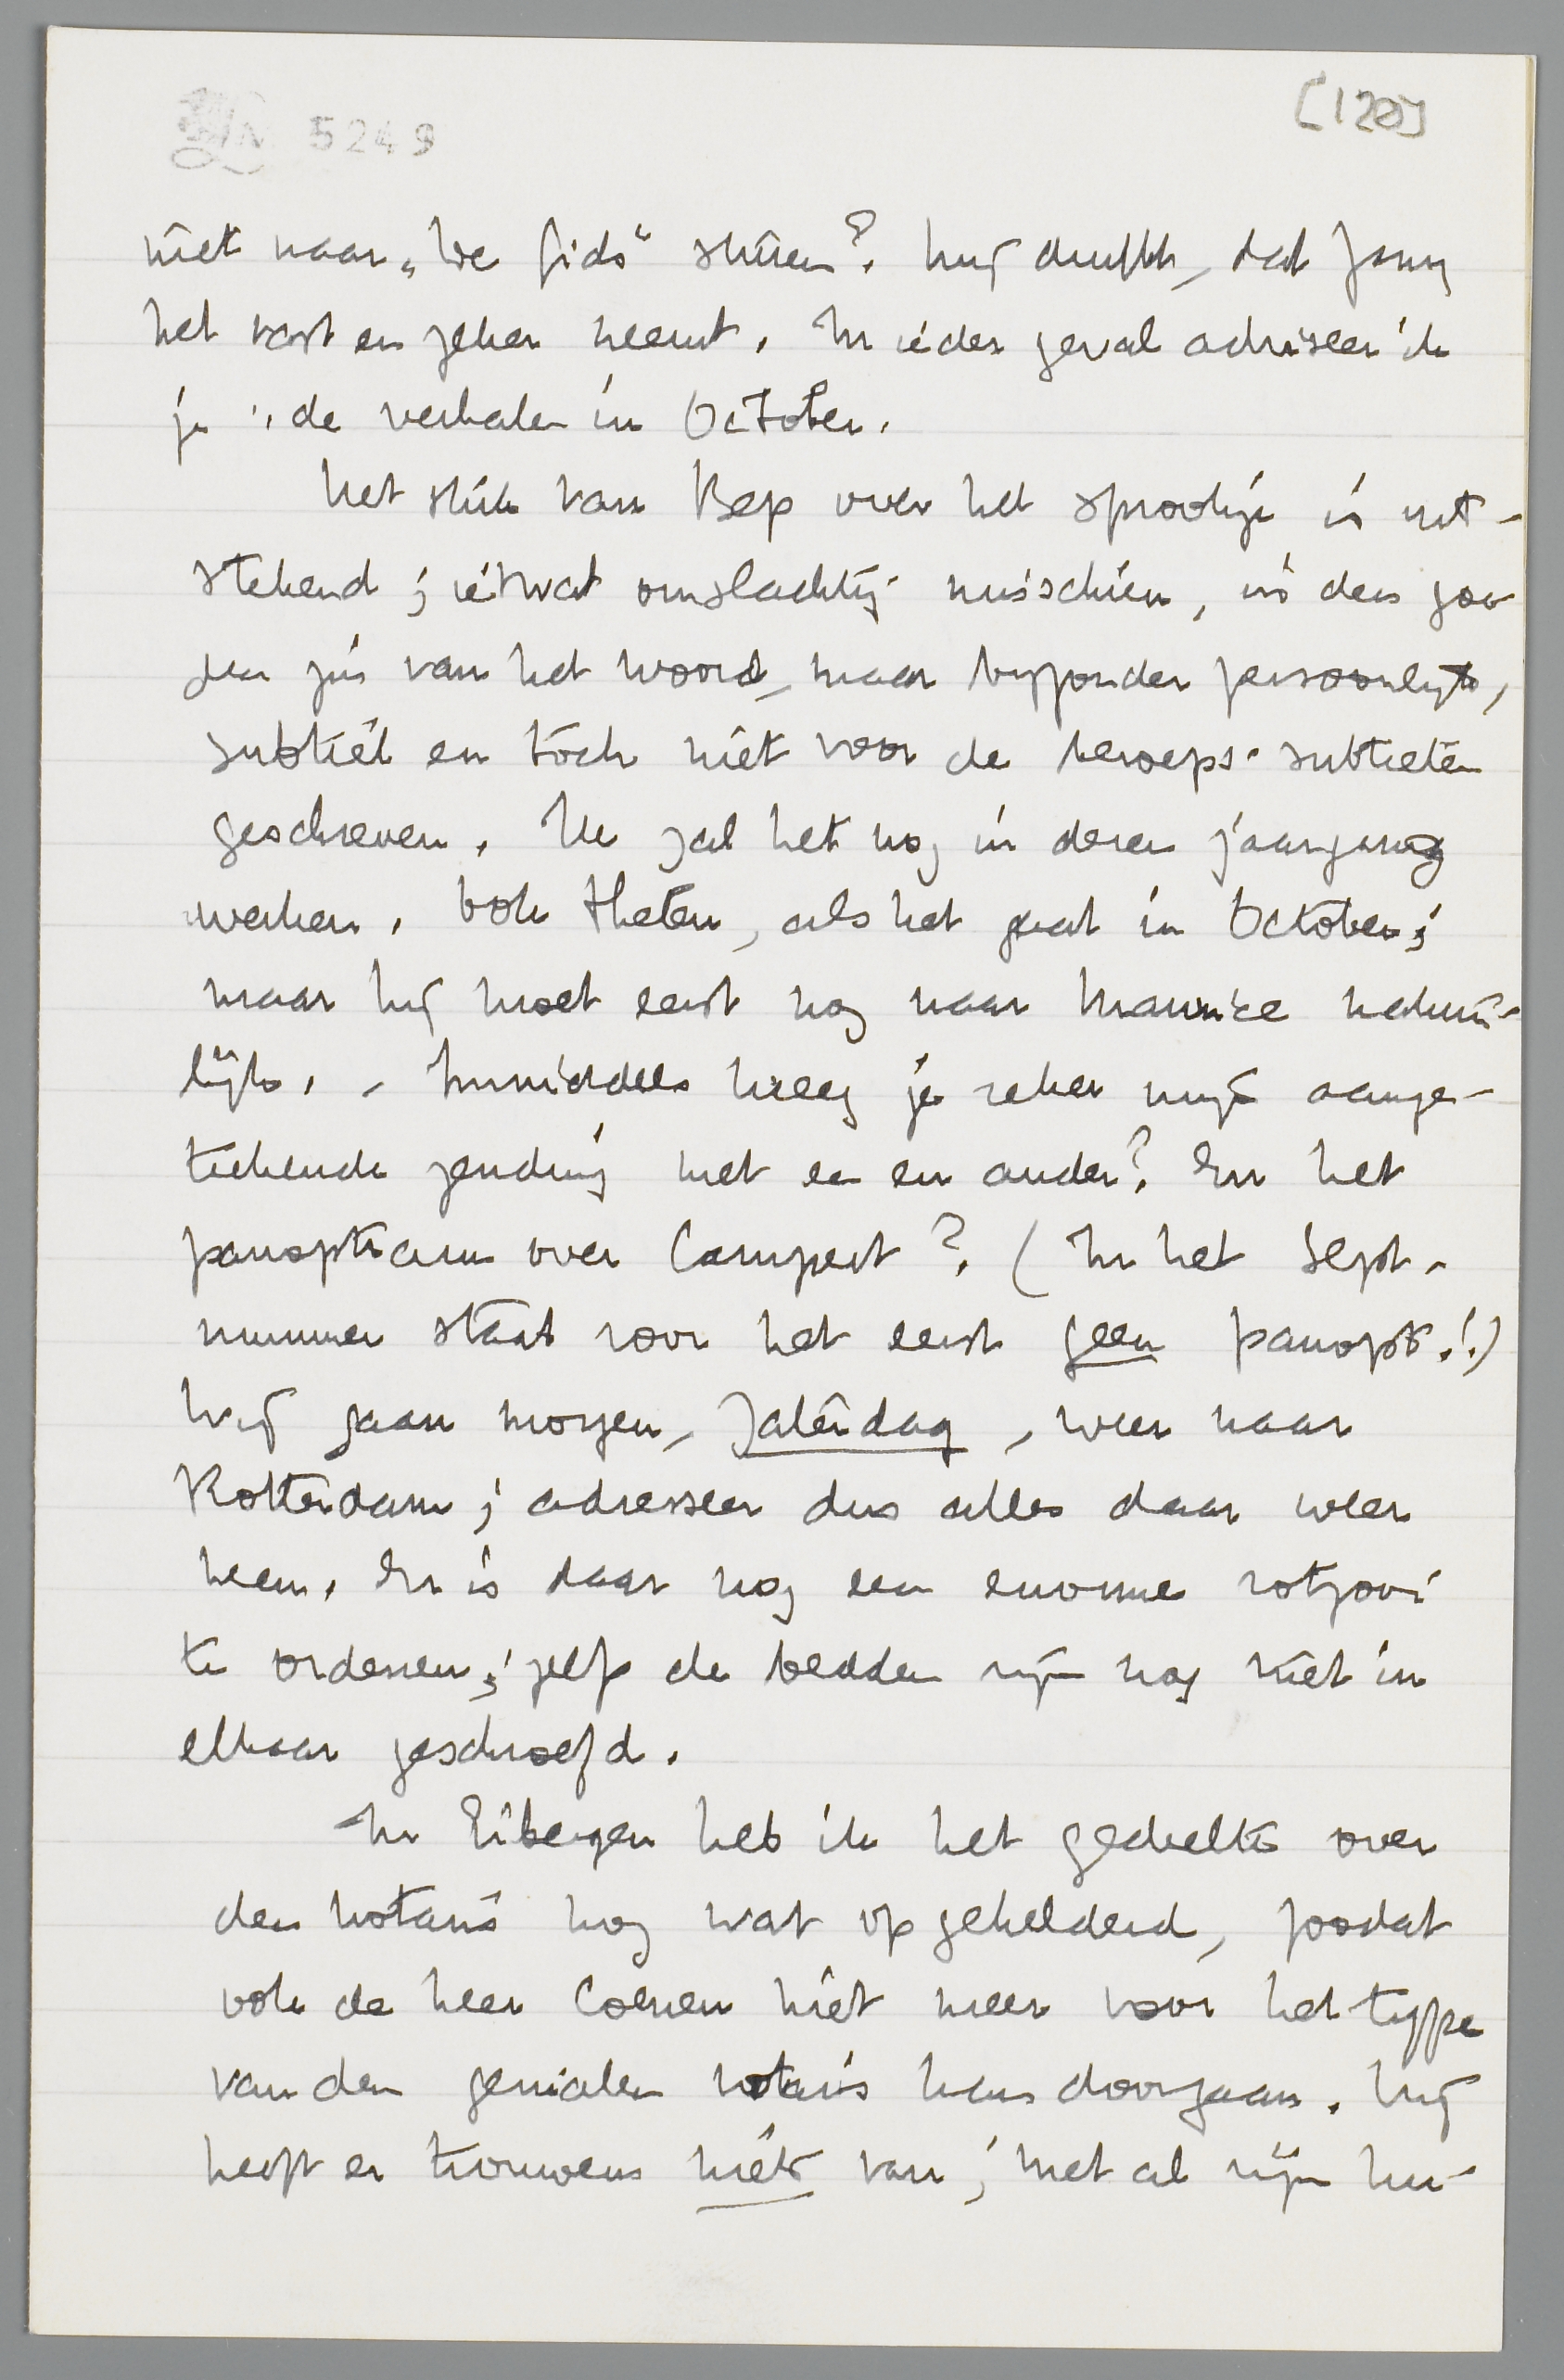 5249
[120]
niet naar „De Gids" sturen? Mij dunkt, dat Jany
het vast en zeker neemt. In ieder geval adviseer ik
je de verhalen in October.
Het stuk van Bep over het sprookje is uit-
stekend; ietwat omslachtig misschien, in den goe
den zin van het woord, maar byzonder persoonlijk,
subtiel en tòch niet voor de beroeps-subtielen
geschreven. We zal het nog in dezen jaargang
werken. Ook Theten, als het gaat in October;
maar hij moet eerst nog naar Maurice natuur-
lijk. - Inmiddels kreeg je zeker mijn aange-
teekende zending met een en ander? En het
panopticum over Campert? (In het Sept.-
nummer staat voor het eerst geen panopt.!)
Wij gaan morgen, Zaterdag, weer naar
Rotterdam; adresseer dus alles daar weer
heen. Er is daar nog een enorme rotzooi
te ordenen; zelfs de bedden zijn nog niet in
elkaar geschroefd.
In Eibergen heb ik het gedeelte over
den notaris nog wat opgehelderd, zoodat
ook de heer Coenen niet meer voor het type
van den genialen notaris kan doorgaan. Hij
heeft er trouwens niets van; met al zijn hu-